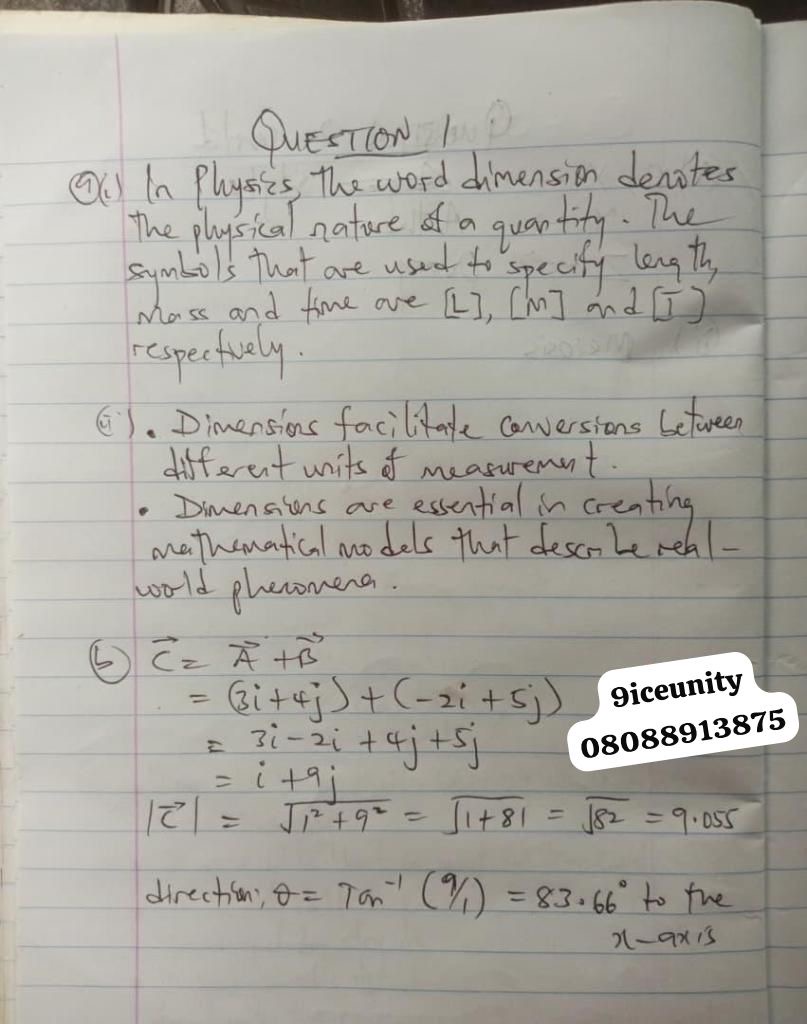 QUESTION 1
a(i) In Physics, the word dimension denotes
the physical nature of a quantity. The
symbols that are used to specify length,
mass and time are [L], [M] and [T]
respectively.
(ii). Dimensions facilitate conversions between
different units of measurement.
• Dimensions are essential in creating
mathematical models that describe real-
world phenomena.
(b) C⃗ = A⃗ + B⃗
= (3i+4j) + (-2i + 5j)
= 3i - 2i + 4j + 5j
= i + 9j
|C⃗| = √(1² + 9²) = √(1+81) = √82 = 9.055
direction, θ = Tan⁻¹ (9/1) = 83.66° to the
x-axis
9iceunity
08088913875